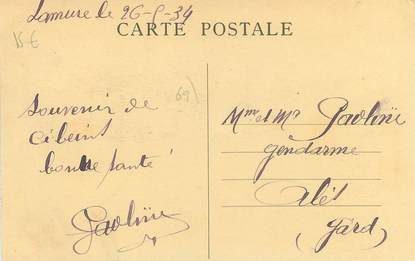 Lamure le 26-8-34
15 €
CARTE POSTALE
69
Souvenir de
Cibeint
bonne santé
Paoline
Mme et Mr Paoline
gendarme
Alès
(Gard)